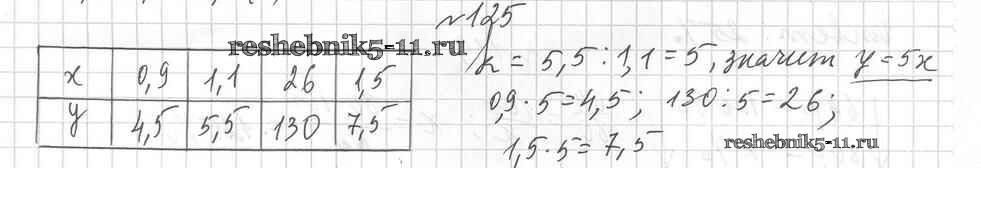 №125
reshebnik5-11.ru
x 0,9 1,1 26 1,5
y 4,5 5,5 130 7,5
k = 5,5 : 1,1 = 5, значит y = 5x
0,9 · 5 = 4,5; 130 : 5 = 26;
1,5 · 5 = 7,5
reshebnik5-11.ru